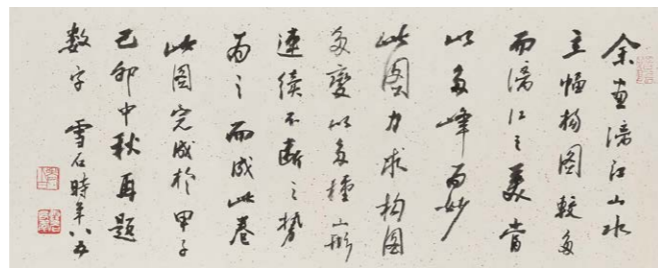 余画漓江山水
立幅构图較多
而漓江之美當
以多峰为妙
此图力求构图
多變以多種山形
連续不断之势
为之而成此卷
此图完成於甲子
己卯中秋再題
数字 雪石時年八五